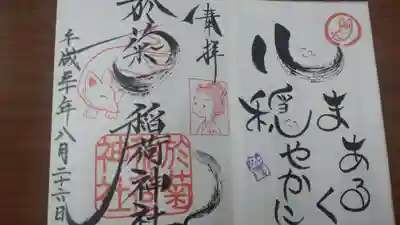 心
まあるく
穏やかに
奉拝
於菊稲荷神社
於菊
稲荷
神社
平成三十年八月二十六日